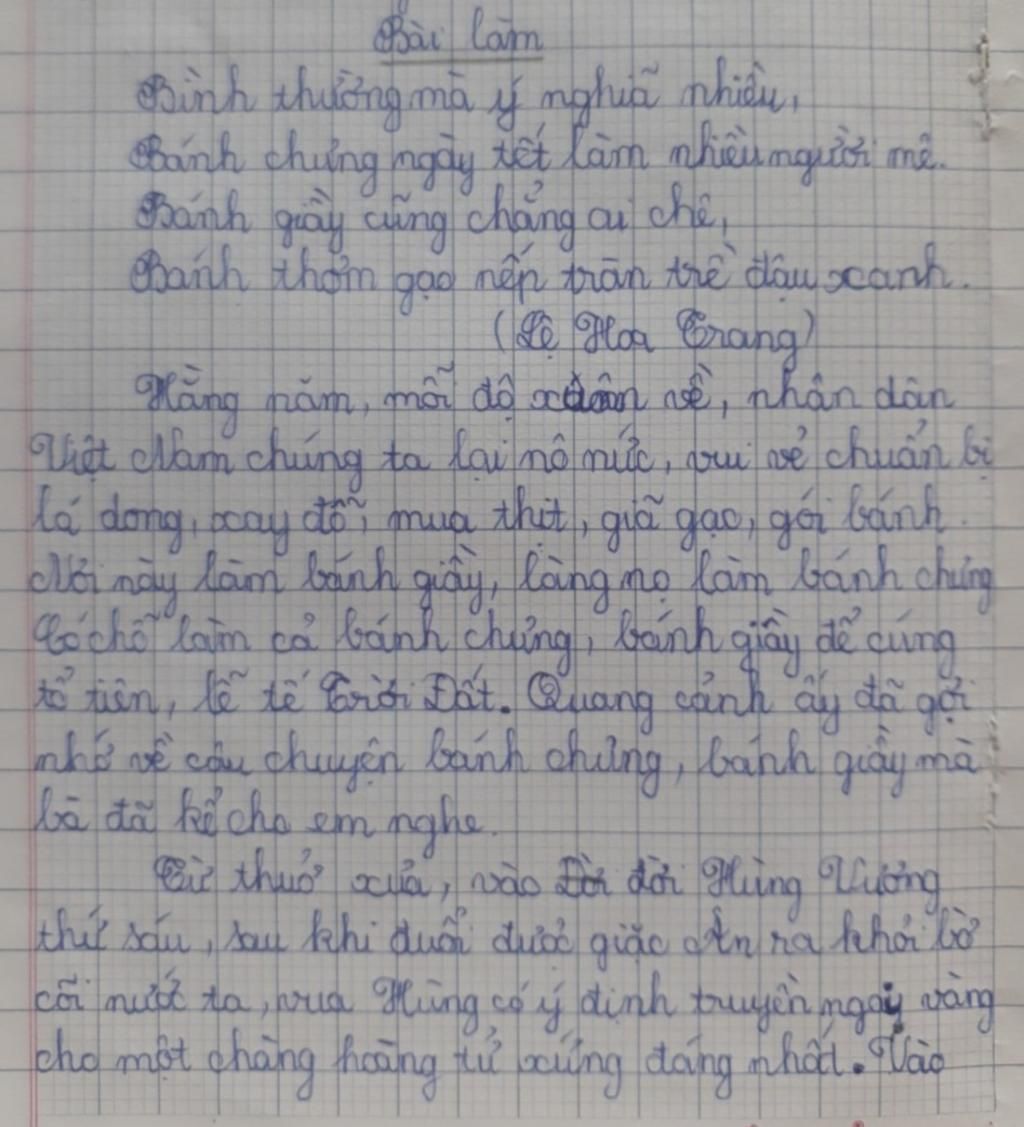 Bài làm
Bình thường mà ý nghĩa nhiều,
Bánh chưng ngày tết làm nhiều người mê.
Bánh giầy cũng chẳng ai chê,
Bánh thơm gạo nếp tràn trề đậu xanh.
(Lệ Hoa Trang)
Hằng năm, mỗi độ xuân về, nhân dân
Việt Nam chúng ta lại nô nức, vui vẻ chuẩn bị
lá dong, xay đỗ, mua thịt, giã gạo, gói bánh.
Nơi này làm bánh giầy, làng nọ làm bánh chưng
Có chỗ làm cả bánh chưng, bánh giầy để cúng
tổ tiên, lễ tế Trời Đất. Quang cảnh ấy đã gợi
nhớ về câu chuyện bánh chưng, bánh giầy mà
bà đã kể cho em nghe.
Từ thuở xưa, vào đời Hùng Vương
thứ sáu, sau khi đuổi được giặc Ân ra khỏi bờ
cõi nước ta, vua Hùng có ý định truyền ngay vàng
cho một chàng hoàng tử xứng đáng nhất. Vào